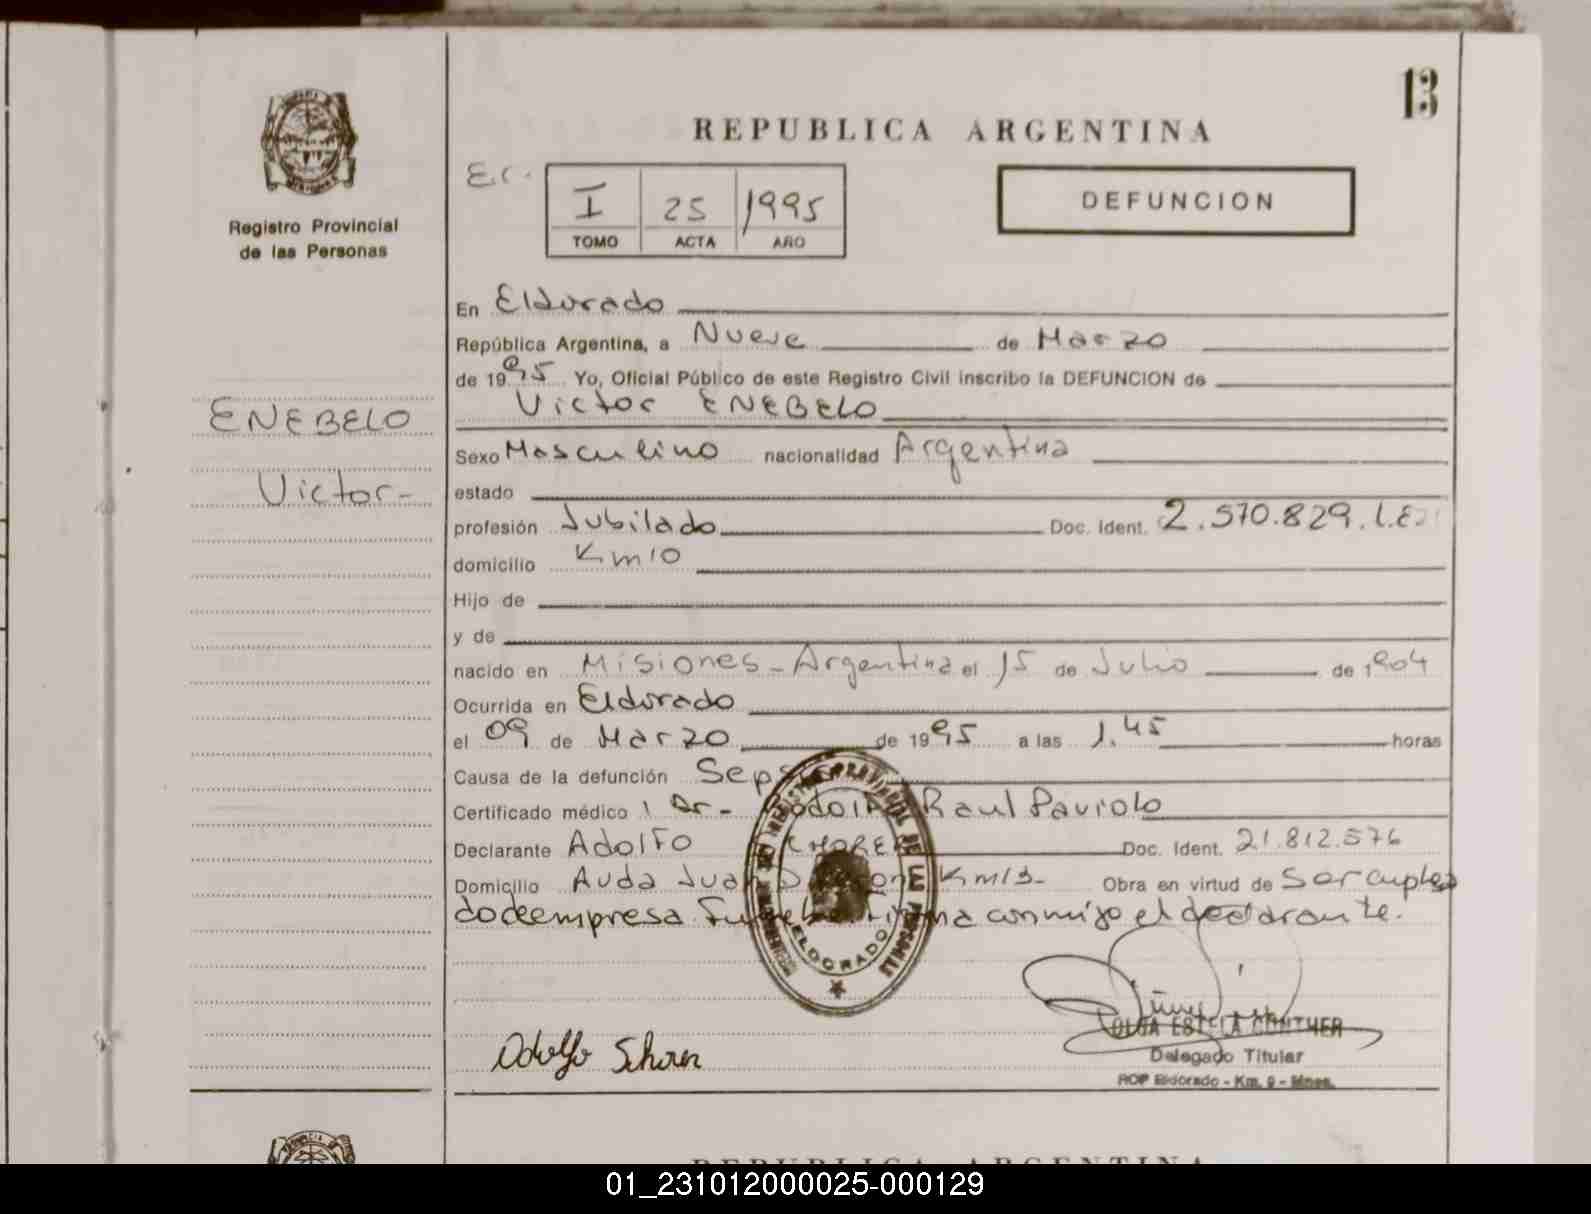 13
REPUBLICA ARGENTINA
Registro Provincial
de las Personas
I 25 1995
TOMO ACTA AÑO
DEFUNCION
En Eldorado
República Argentina, a Nueve de Marzo
de 1995 Yo, Oficial Público de este Registro Civil inscribo la DEFUNCION de
Victor ENEBELO
ENEBELO
Victor-
Sexo Masculino nacionalidad Argentina
estado
profesión Jubilado Doc. Ident. 2.570.829. L.E.
domicilio Km10
Hijo de
y de
nacido en Misiones-Argentina el 15 de Julio de 1904
Ocurrida en Eldorado
el 09 de Marzo de 1995 a las 1.45 horas
Causa de la defunción
Certificado médico Dr- Raul Paviolo
Declarante Adolfo Doc. Ident. 21.812.576
Domicilio Avda Juan Km13- Obra en virtud de Ser emplea
do de empresa conmigo el declarante.
ELDORADO
Adolfo
OLGA ESTELA GUNTHER
Delegado Titular
RCP Eldorado - Km. 9 - Mnes.
REPUBLICA ARGENTINA
01_231012000025-000129